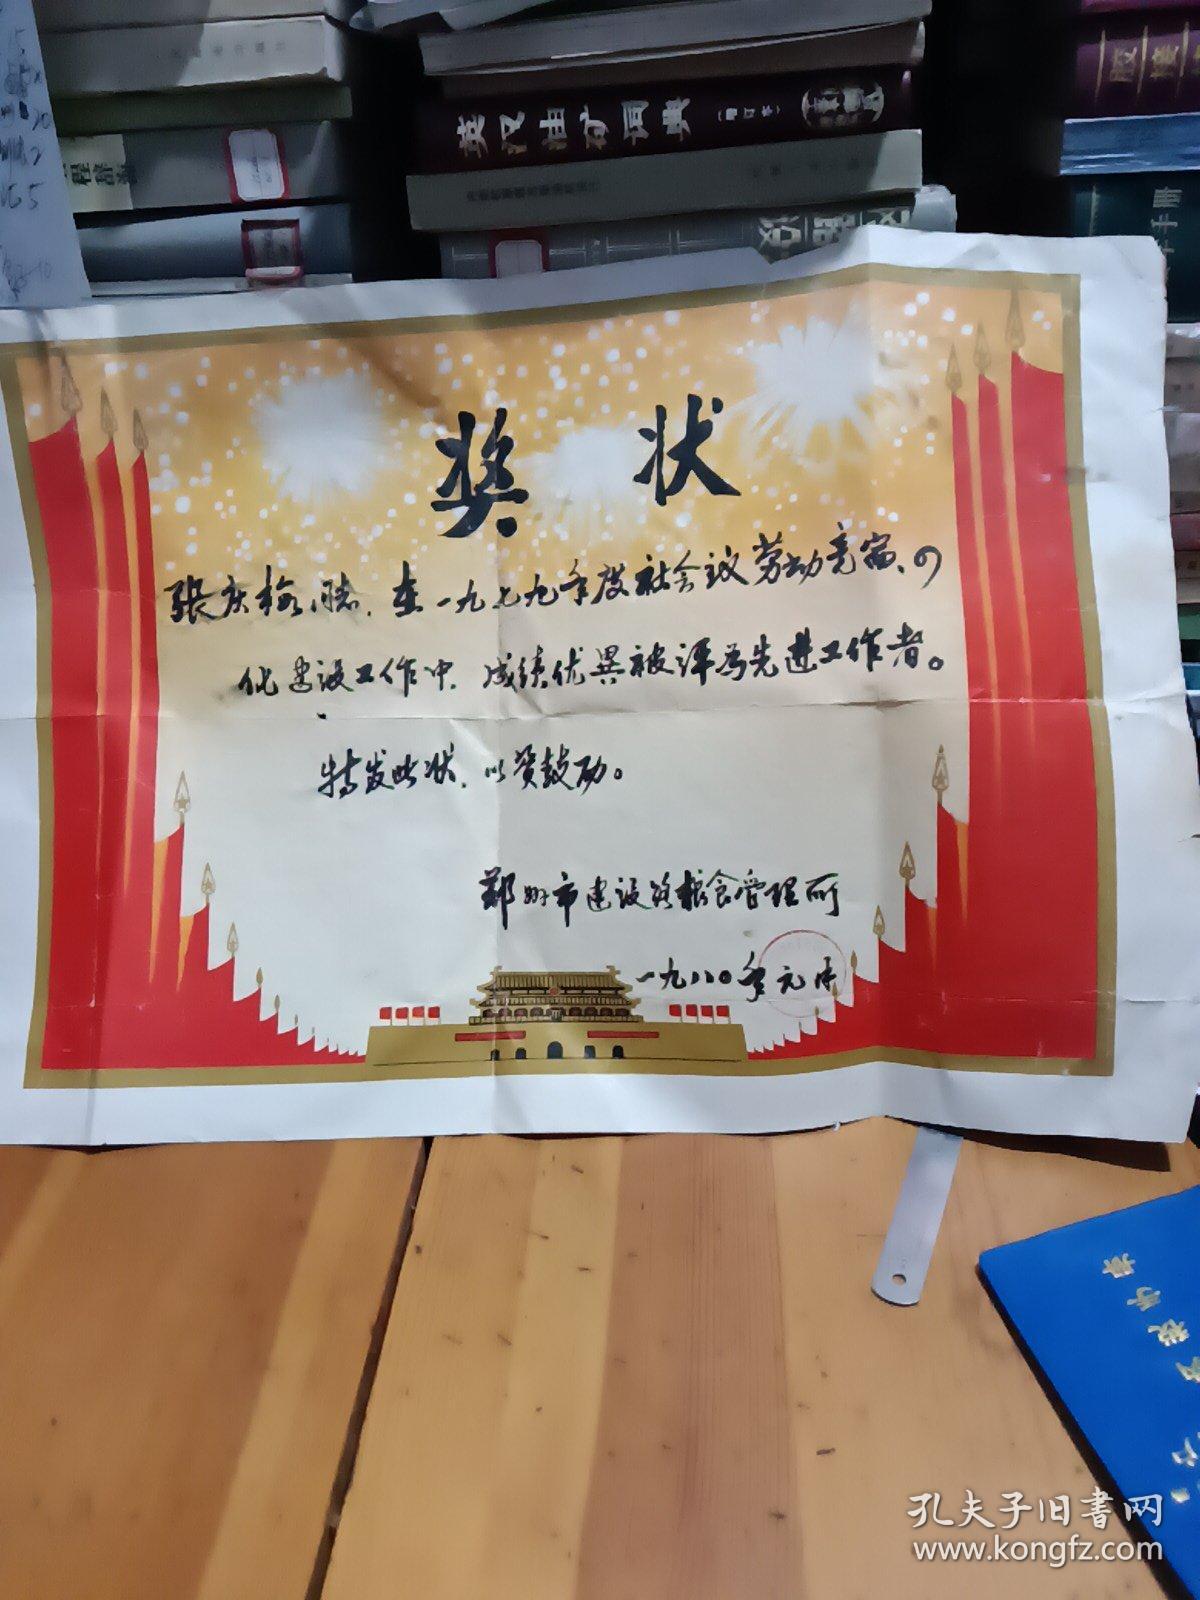 英汉油矿词典
(增订本)
手册
奖状
张庆梅同志,在一九七九年度社会主义劳动竞赛、四
化建设工作中,成绩优异被评为先进工作者。
特发此状,以资鼓励。
郑州市建设路粮食管理所
一九八〇年元月
孔夫子旧书网
www.kongfz.com